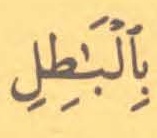 بِٱلۡبَٰطِلِ